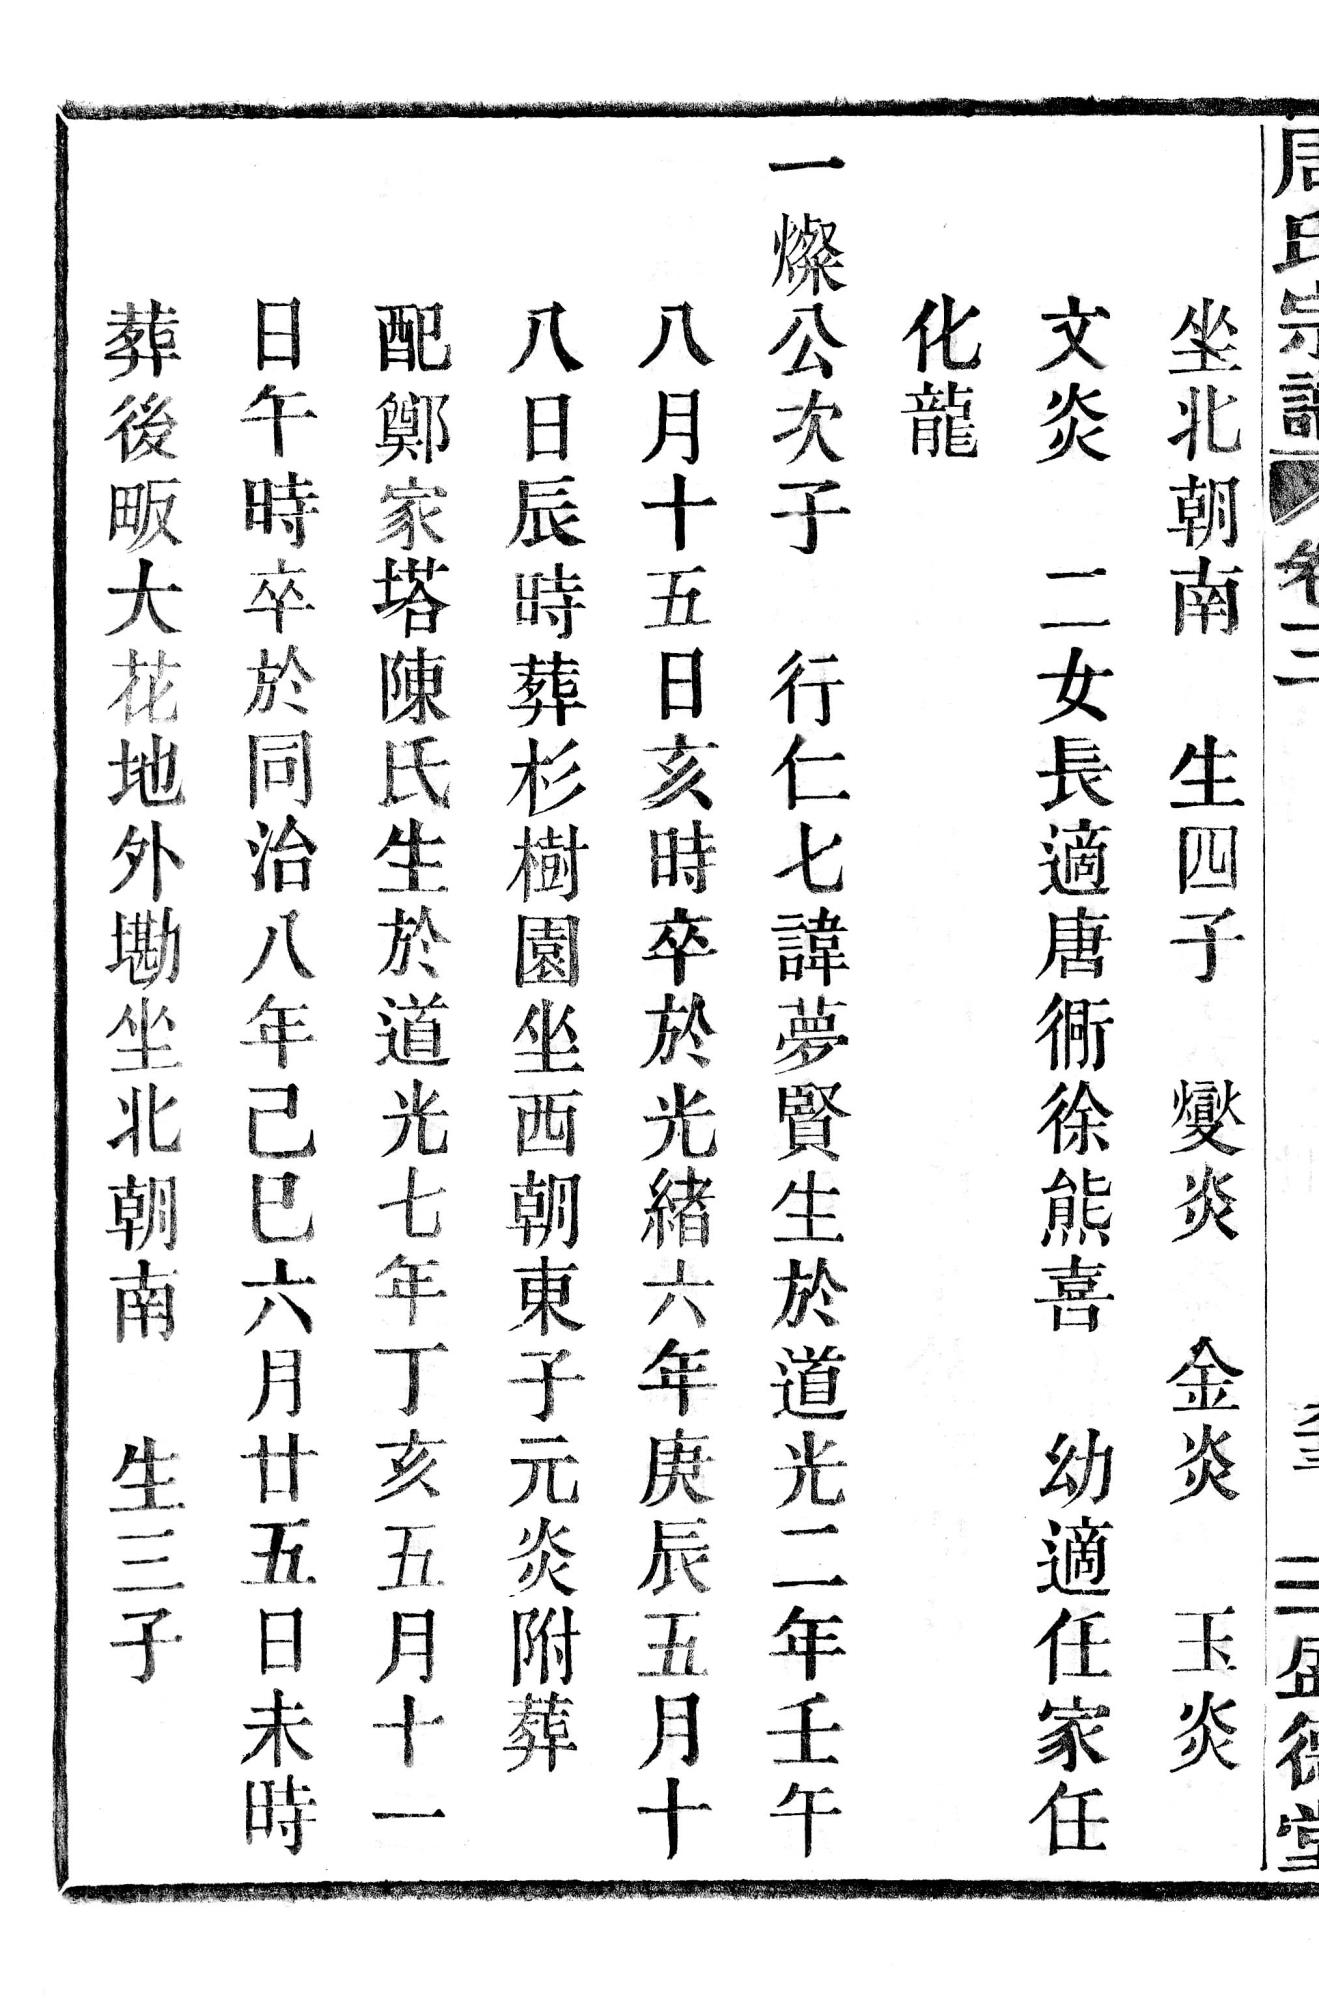 周氏宗譜 卷三 三 盛德堂
坐北朝南 生四子 燮炎 金炎 玉炎
文炎 二女長適唐衕徐熊喜 幼適任家任
化龍
一燦公次子 行仁七諱夢賢生於道光二年壬午
八月十五日亥時卒於光緒六年庚辰五月十
八日辰時葬杉樹園坐西朝東子元炎附葬
配鄭家塔陳氏生於道光七年丁亥五月十一
日午時卒於同治八年己巳六月廿五日未時
葬後畈大花地外墈坐北朝南 生三子